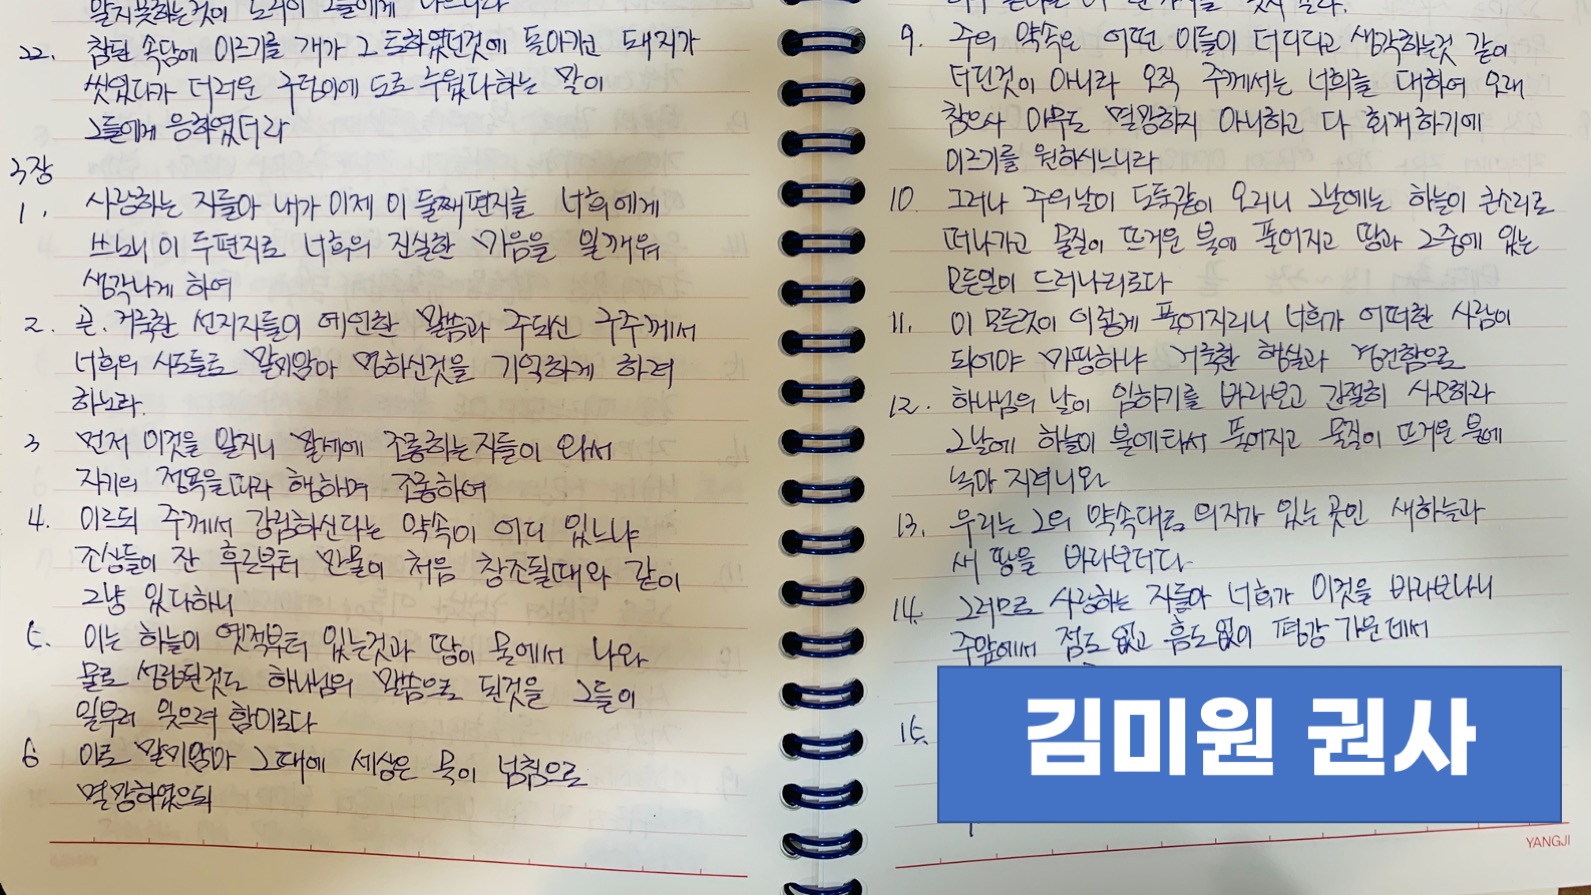 22. 참된 속담에 이르기를 개가 그 토하였던것에 돌아가고 돼지가
씻었다가 더러운 구덩이에 도로 누웠다하는 말이
그들에게 응하였더라
3장
1. 사랑하는 자들아 내가 이제 이 둘째 편지를 너희에게
쓰노니 이 두편지로 너희의 진실한 마음을 일깨워
생각나게 하여
2. 곧 거룩한 선지자들이 예언한 말씀과 주되신 구주께서
너희의 사도들로 말미암아 명하신것을 기억하게 하려
하노라.
3 먼저 이것을 알지니 말세에 조롱하는 자들이 와서
자기의 정욕을 따라 행하며 조롱하여
4. 이르되 주께서 강림하신다는 약속이 어디 있느냐
조상들이 잔 후로부터 만물이 처음 창조될때와 같이
그냥 있다하니
5. 이는 하늘이 옛적부터 있는것과 땅이 물에서 나와
물로 성립된것도 하나님의 말씀으로 된것을 그들이
일부러 잊으려 함이로다
6 이로 말미암아 그때에 세상은 물이 넘침으로
멸망하였으되
9. 주의 약속은 어떤 이들이 더디다고 생각하는것 같이
더딘것이 아니라 오직 주께서는 너희를 대하여 오래
참으사 아무도 멸망하지 아니하고 다 회개하기에
이르기를 원하시느니라
10. 그러나 주의날이 도둑같이 오리니 그날에는 하늘이 큰소리로
떠나가고 물질이 뜨거운 불에 풀어지고 땅과 그중에 있는
모든일이 드러나리로다
11. 이 모든것이 이렇게 풀어지리니 너희가 어떠한 사람이
되어야 마땅하냐 거룩한 행실과 경건함으로
12. 하나님의 날이 임하기를 바라보고 간절히 사모하라
그날에 하늘이 불에타서 풀어지고 물질이 뜨거운 불에
녹아 지려니와
13. 우리는 그의 약속대로 의자가 있는 곳인 새하늘과
새 땅을 바라보더다
14. 그러므로 사랑하는 자들아 너희가 이것을 바라보나니
주앞에서 점도 없고 흠도 없이 평강 가운데서
15.
김미원 권사
YANGJI